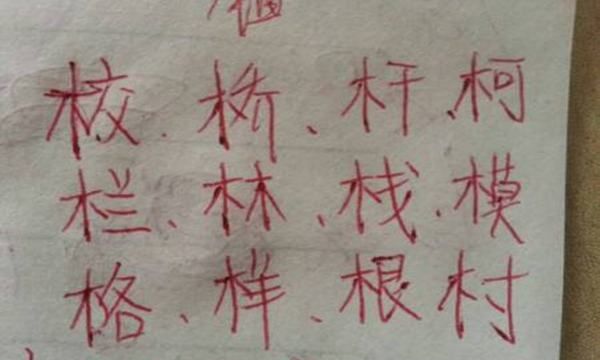 校、桥、杆、柯
栏、林、栈、模
格、样、根村